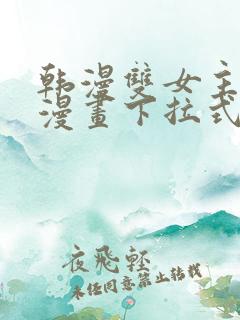 韩漫雙女主
漫畫下拉式
夜飛輕
未经同意禁止转载